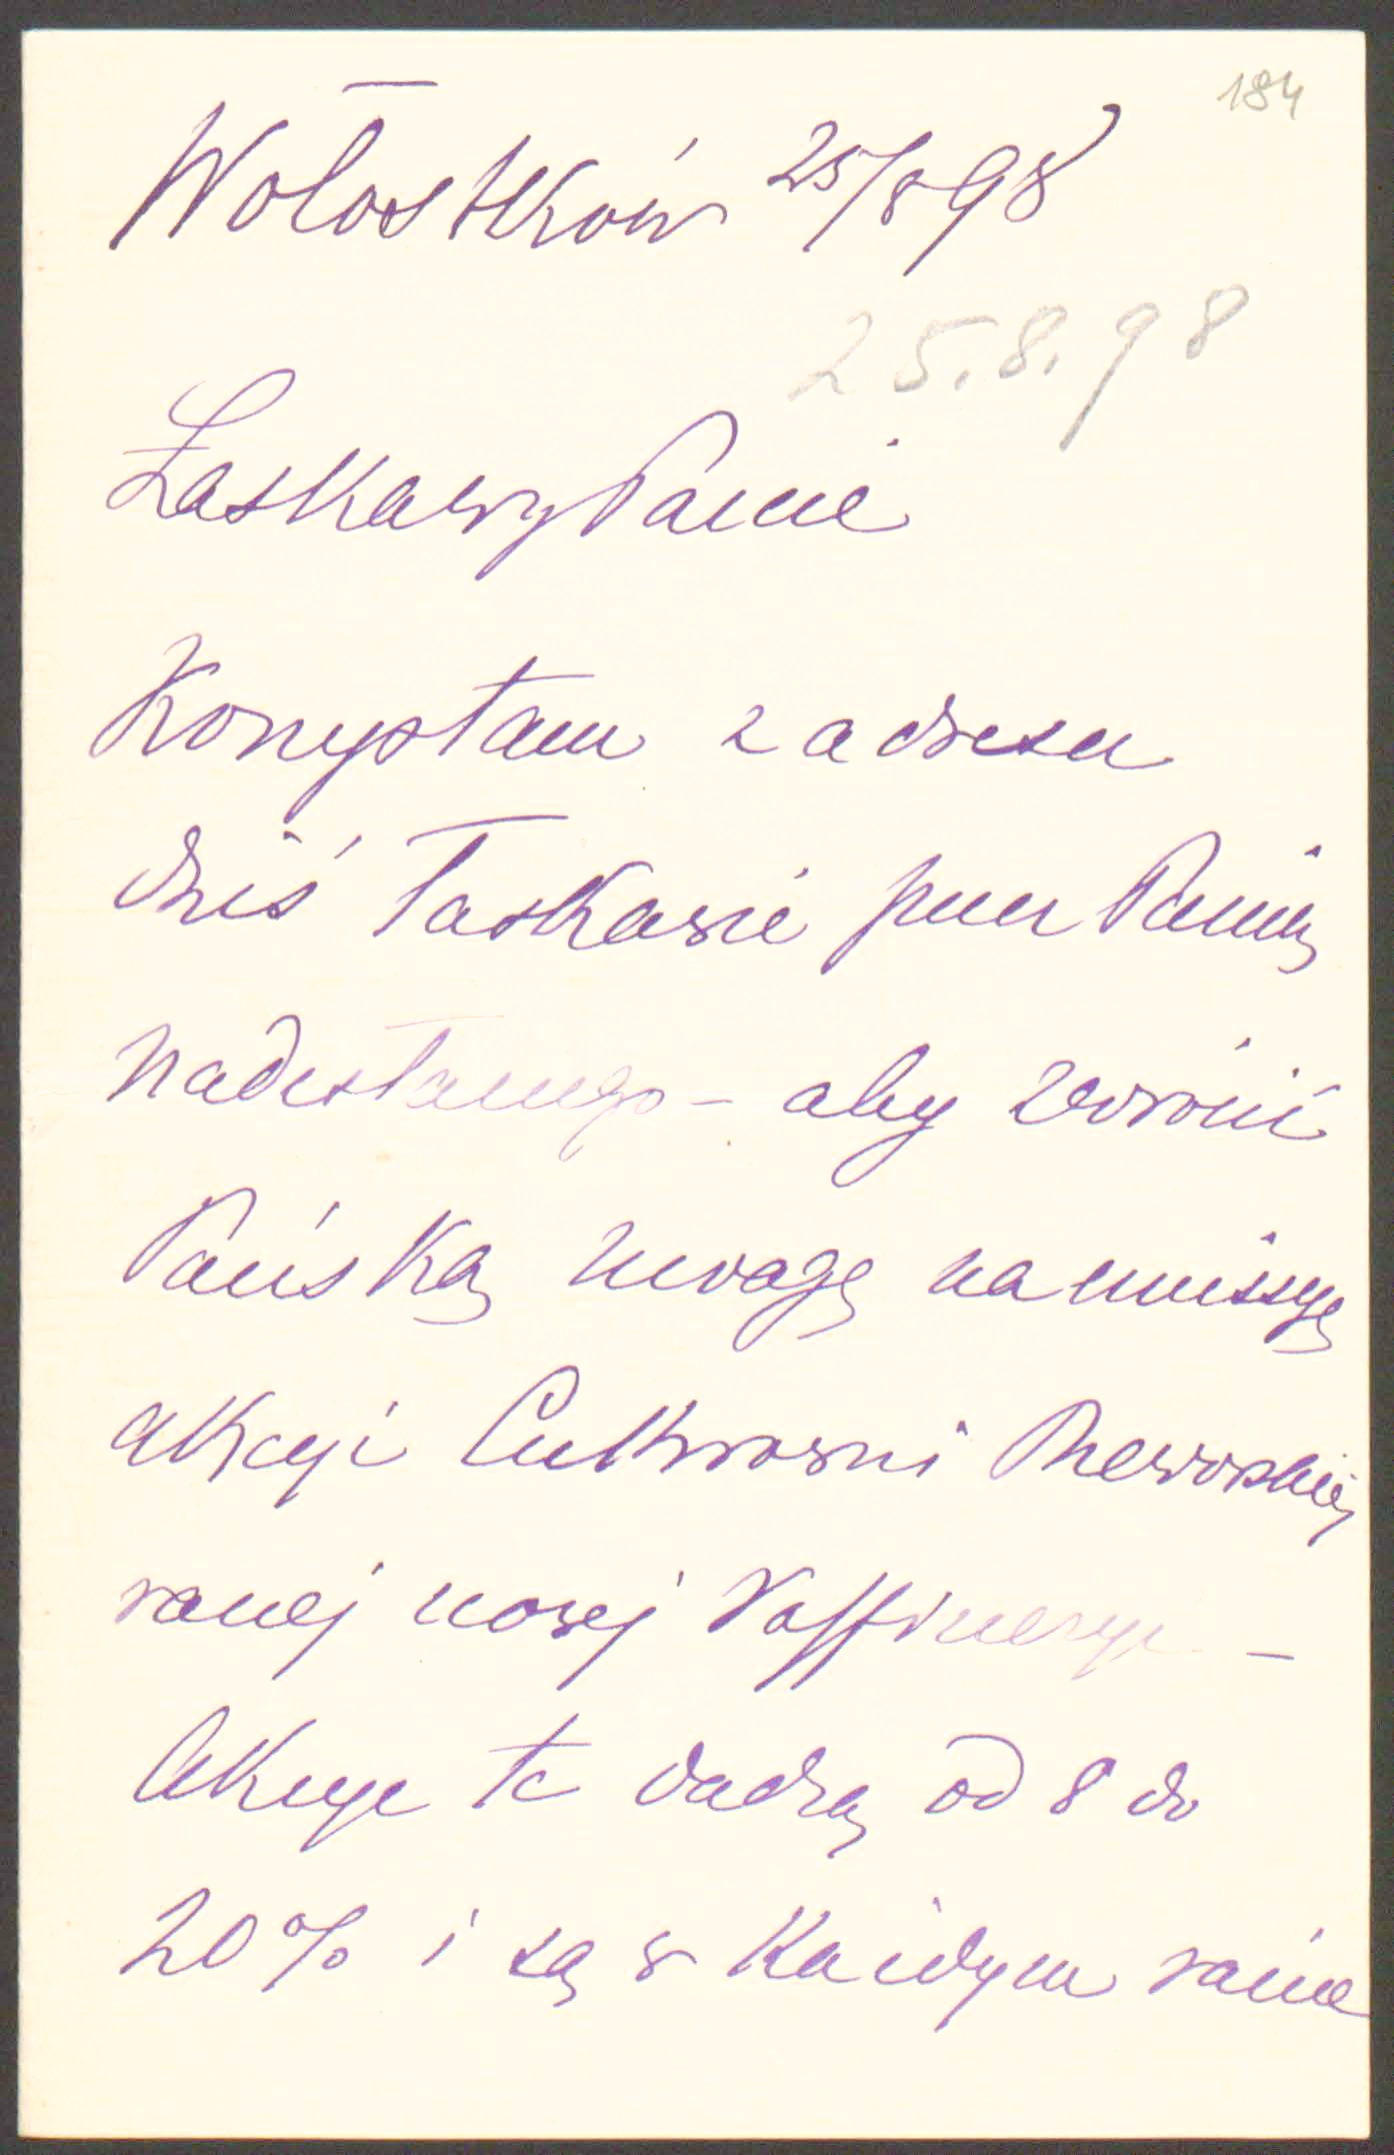 184
Wołostków 25/8 98
25.8.98
Łaskawy Panie
Korzystam z adresu
dziś łaskawie przez Panią
nadesłanego – aby zwrócić
Pańską uwagę na emissyę
akcyi Cukrowni Przeworskiej
nowej Raffineryi –
Akcye te dadzą od 8 do
20% i są w każdym razie